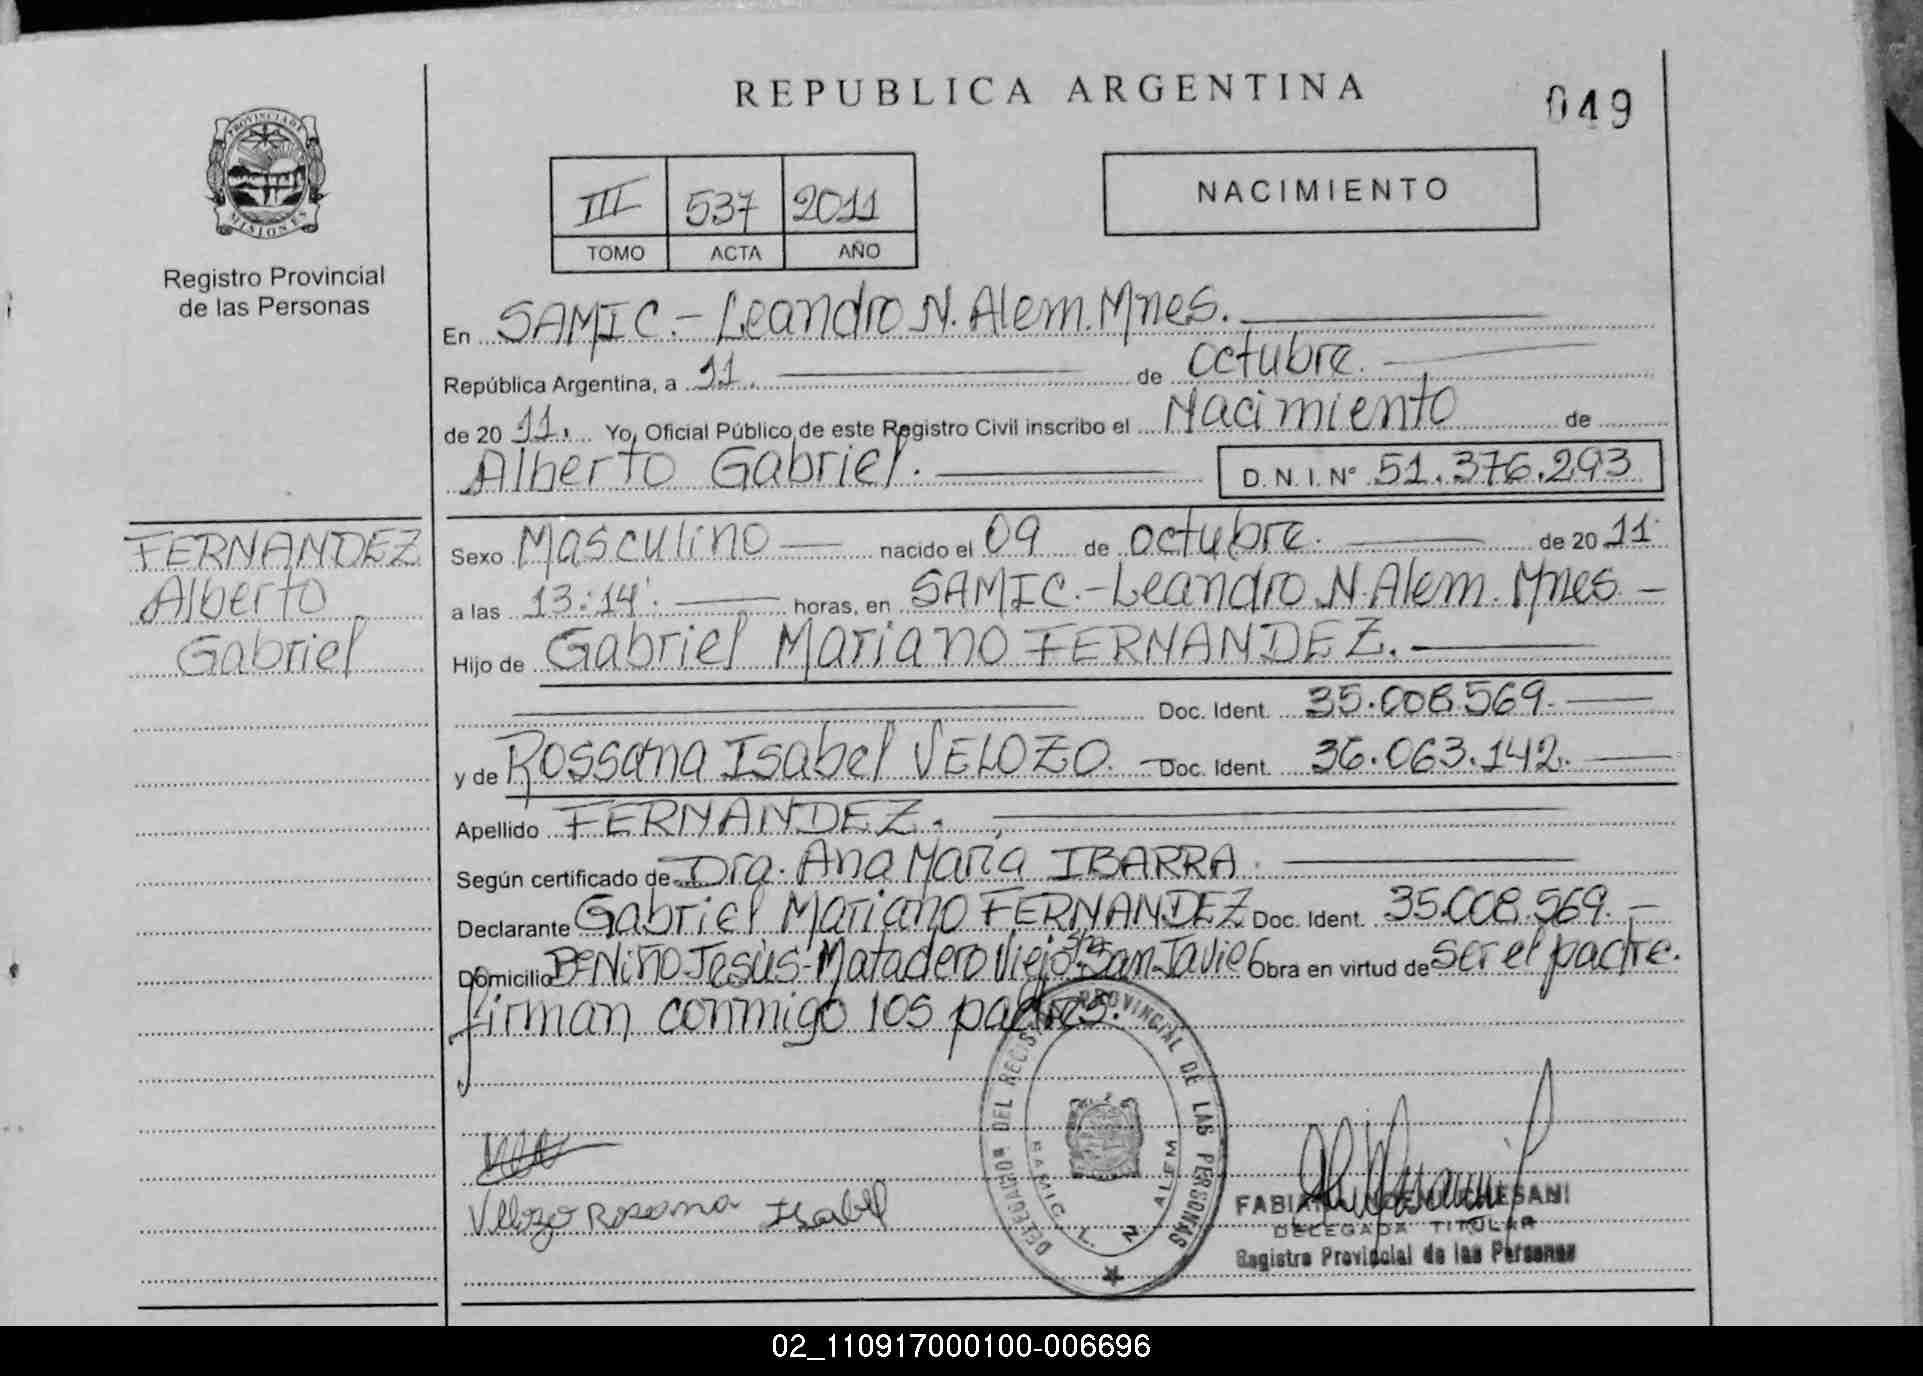 REPUBLICA ARGENTINA
049
PROVINCIA DE
MISIONES
Registro Provincial
de las Personas
III 537 2011
TOMO ACTA AÑO
NACIMIENTO
En SAMIC.- Leandro N. Alem. Mnes.
República Argentina, a 11. de octubre.
de 20 11. Yo, Oficial Público de este Registro Civil inscribo el Nacimiento de
Alberto Gabriel. D.N.I. N° 51.376.293
FERNANDEZ
Alberto
Gabriel
Sexo Masculino nacido el 09 de octubre. de 20 11.
a las 13:14. horas, en SAMIC.-Leandro N. Alem. Mnes -
Hijo de Gabriel Mariano FERNANDEZ.
Doc. Ident. 35.008.569.
y de Rossana Isabel VELOZO. Doc. Ident. 36.063.142.
Apellido FERNANDEZ.
Según certificado de Dra. Ana María IBARRA.
Declarante Gabriel Mariano FERNANDEZ Doc. Ident. 35.008.569.-
Domicilio B° Niño Jesús-Matadero Viejo San Javier Obra en virtud de ser el padre.
firman conmigo los padres.
Velozo Rosana Isabel
DELEGACION DEL REGISTRO PROVINCIAL DE LAS PERSONAS
SAMIC L. N. ALEM
DELEGADA TITULAR
Registro Provincial de las Personas
02_110917000100-006696